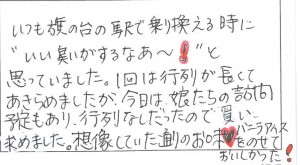 いつも旗の台の駅で乗り換える時に
"いい臭いがするなあ〜!"と
思っていました。1回は行列が長くて
あきらめましたが、今日は、娘たちの訪問
予定もあり、行列なしだったので買い
求めました。想像していた通りのお味♥バニラアイス
をのせて
おいしかった!